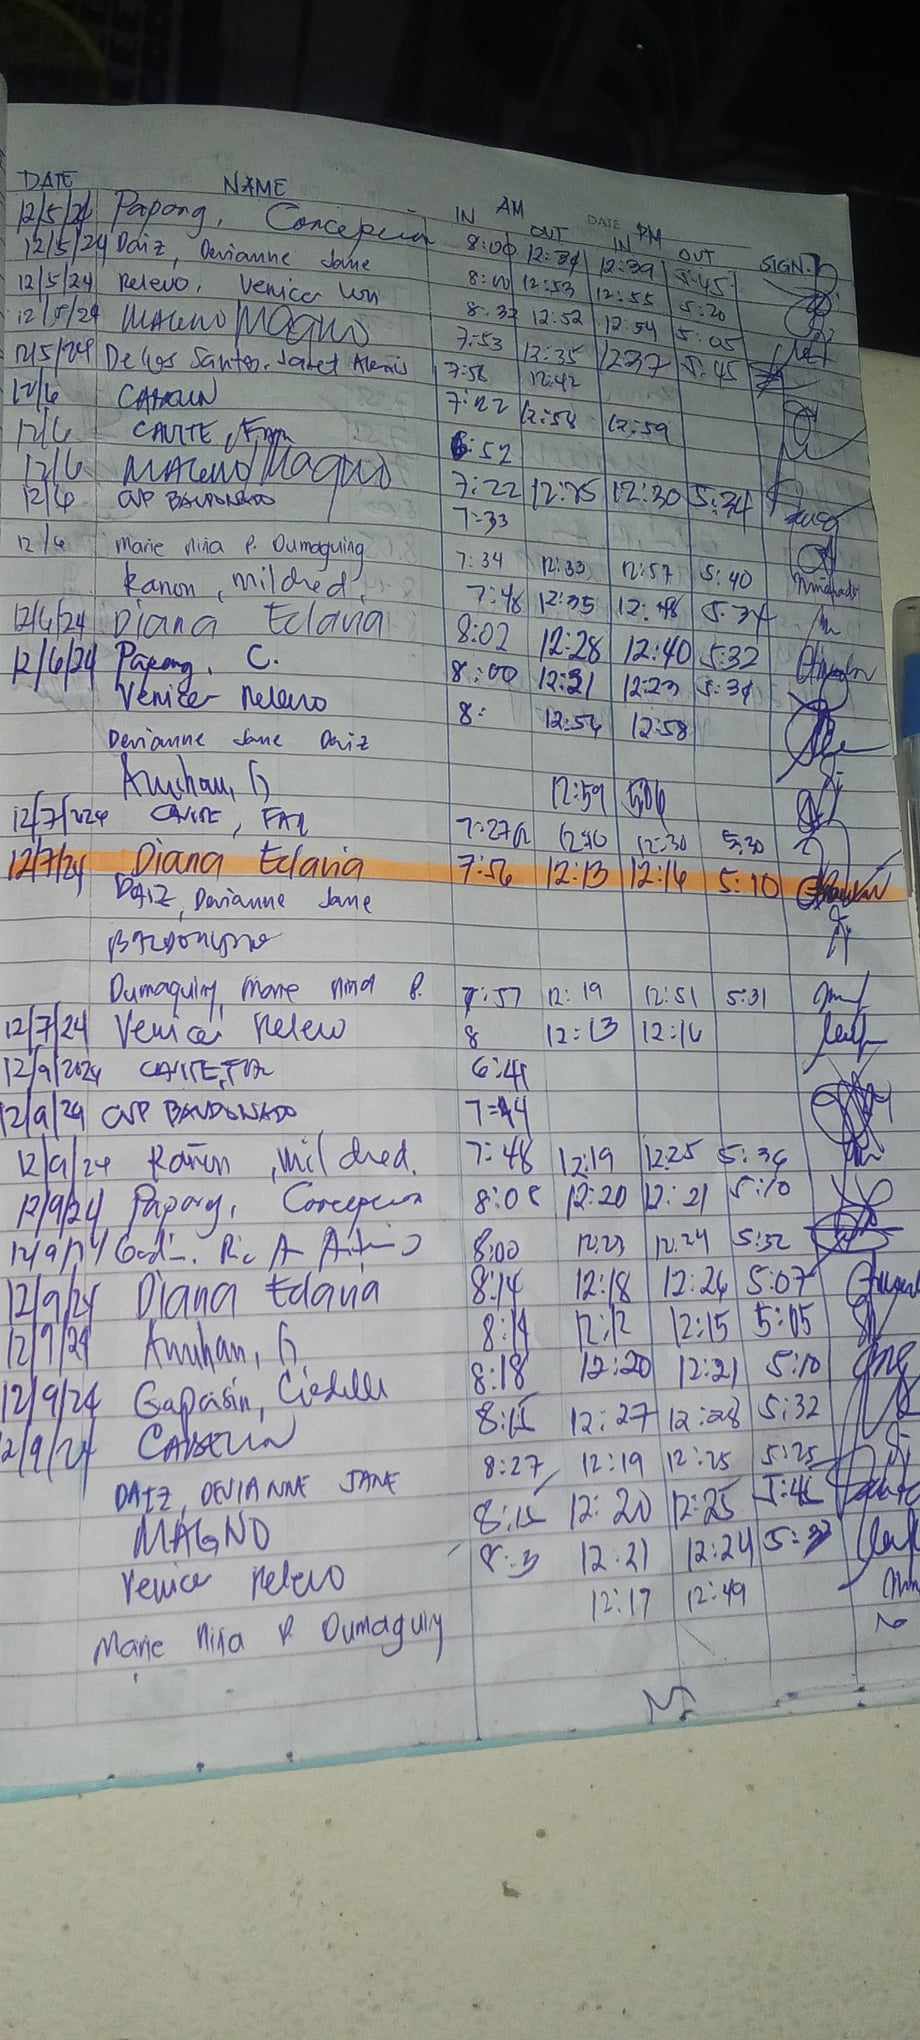 DATE NAME IN AM OUT DATE IN PM OUT SIGN.
12/5/24 Papong, Concepcion 8:00 12:34 12:39 5:45
12/5/24 Daiz, Devianne Jane 8:00 12:53 12:55 5:20
12/5/24 Relevo, Venice 8:32 12:52 12:54 5:05
12/5/24 MALENO/MAGNO 7:53 12:35 1237 5:45
12/5/24 Delos Santos, Janet Alexis 7:58 12:42
12/6 7:22 12:58 12:59
12/6 CAVITE, 6:52
12/6 MALENO/MAGNO 7:22 12:25 12:30 5:34
12/6 CVP BALDONADO 7:33
12/6 Marie Niña P. Dumaguing 7:34 12:33 12:57 5:40
Ranon, Mildred 7:48 12:35 12:48 5:34
12/6/24 Diana Eclavia 8:02 12:28 12:40 5:32
12/6/24 Papong, C. 8:00 12:21 12:23 5:34
Venice Relevo 8: 12:56 12:58
Devianne Jane Daiz
Amihan, G 12:59 5:06
12/7/2024 CAVITE, 7:27 12:10 12:30 5:30
12/7/24 Diana Eclavia 7:56 12:13 12:16 5:10
DAIZ, Devianne Jane
Dumaguing, Marie Niña P. 7:57 12:19 12:51 5:31
12/7/24 Venice Relevo 8 12:13 12:16
12/9/2024 CAVITE, 6:41
12/9/24 CVP BALDONADO 7:44
12/9/24 Rañon, Mildred. 7:48 12:19 12:25 5:36
12/9/24 Papong, Concepcion 8:08 12:20 12:21 5:10
12/9/24 Ric A 8:00 12:23 12:24 5:32
12/9/24 Diana Eclavia 8:14 12:18 12:26 5:07
12/9/24 Amihan, G 8:14 12:12 12:15 5:05
12/9/24 Gaparin, 8:18 12:20 12:21 5:10
12/9/24 8:15 12:27 12:28 5:32
DAIZ, DEVIANNE JANE 8:27 12:19 12:25 5:25
MAGNO 8:15 12:20 12:25 5:45
Venice Relevo 8:3 12:21 12:24 5:32
Marie Niña P Dumaguing 12:17 12:49